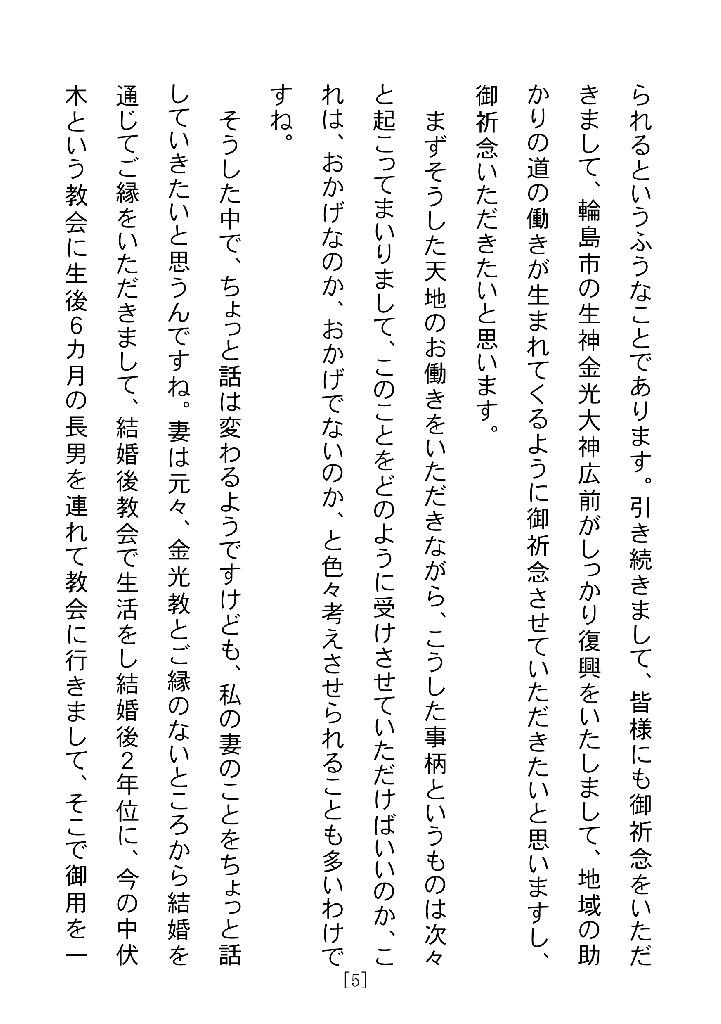 られるというふうなことであります。引き続きまして、皆様にも御祈念をいただ
きまして、輪島市の生神金光大神広前がしっかり復興をいたしまして、地域の助
かりの道の働きが生まれてくるように御祈念させていただきたいと思いますし、
御祈念いただきたいと思います。
まずそうした天地のお働きをいただきながら、こうした事柄というものは次々
と起こってまいりまして、このことをどのように受けさせていただけばいいのか、こ
れは、おかげなのか、おかげでないのか、と色々考えさせられることも多いわけで
すね。
そうした中で、ちょっと話は変わるようですけども、私の妻のことをちょっと話
していきたいと思うんですね。妻は元々、金光教とご縁のないところから結婚を
通じてご縁をいただきまして、結婚後教会で生活をし結婚後2年位に、今の中伏
木という教会に生後6カ月の長男を連れて教会に行きまして、そこで御用を一
[5]